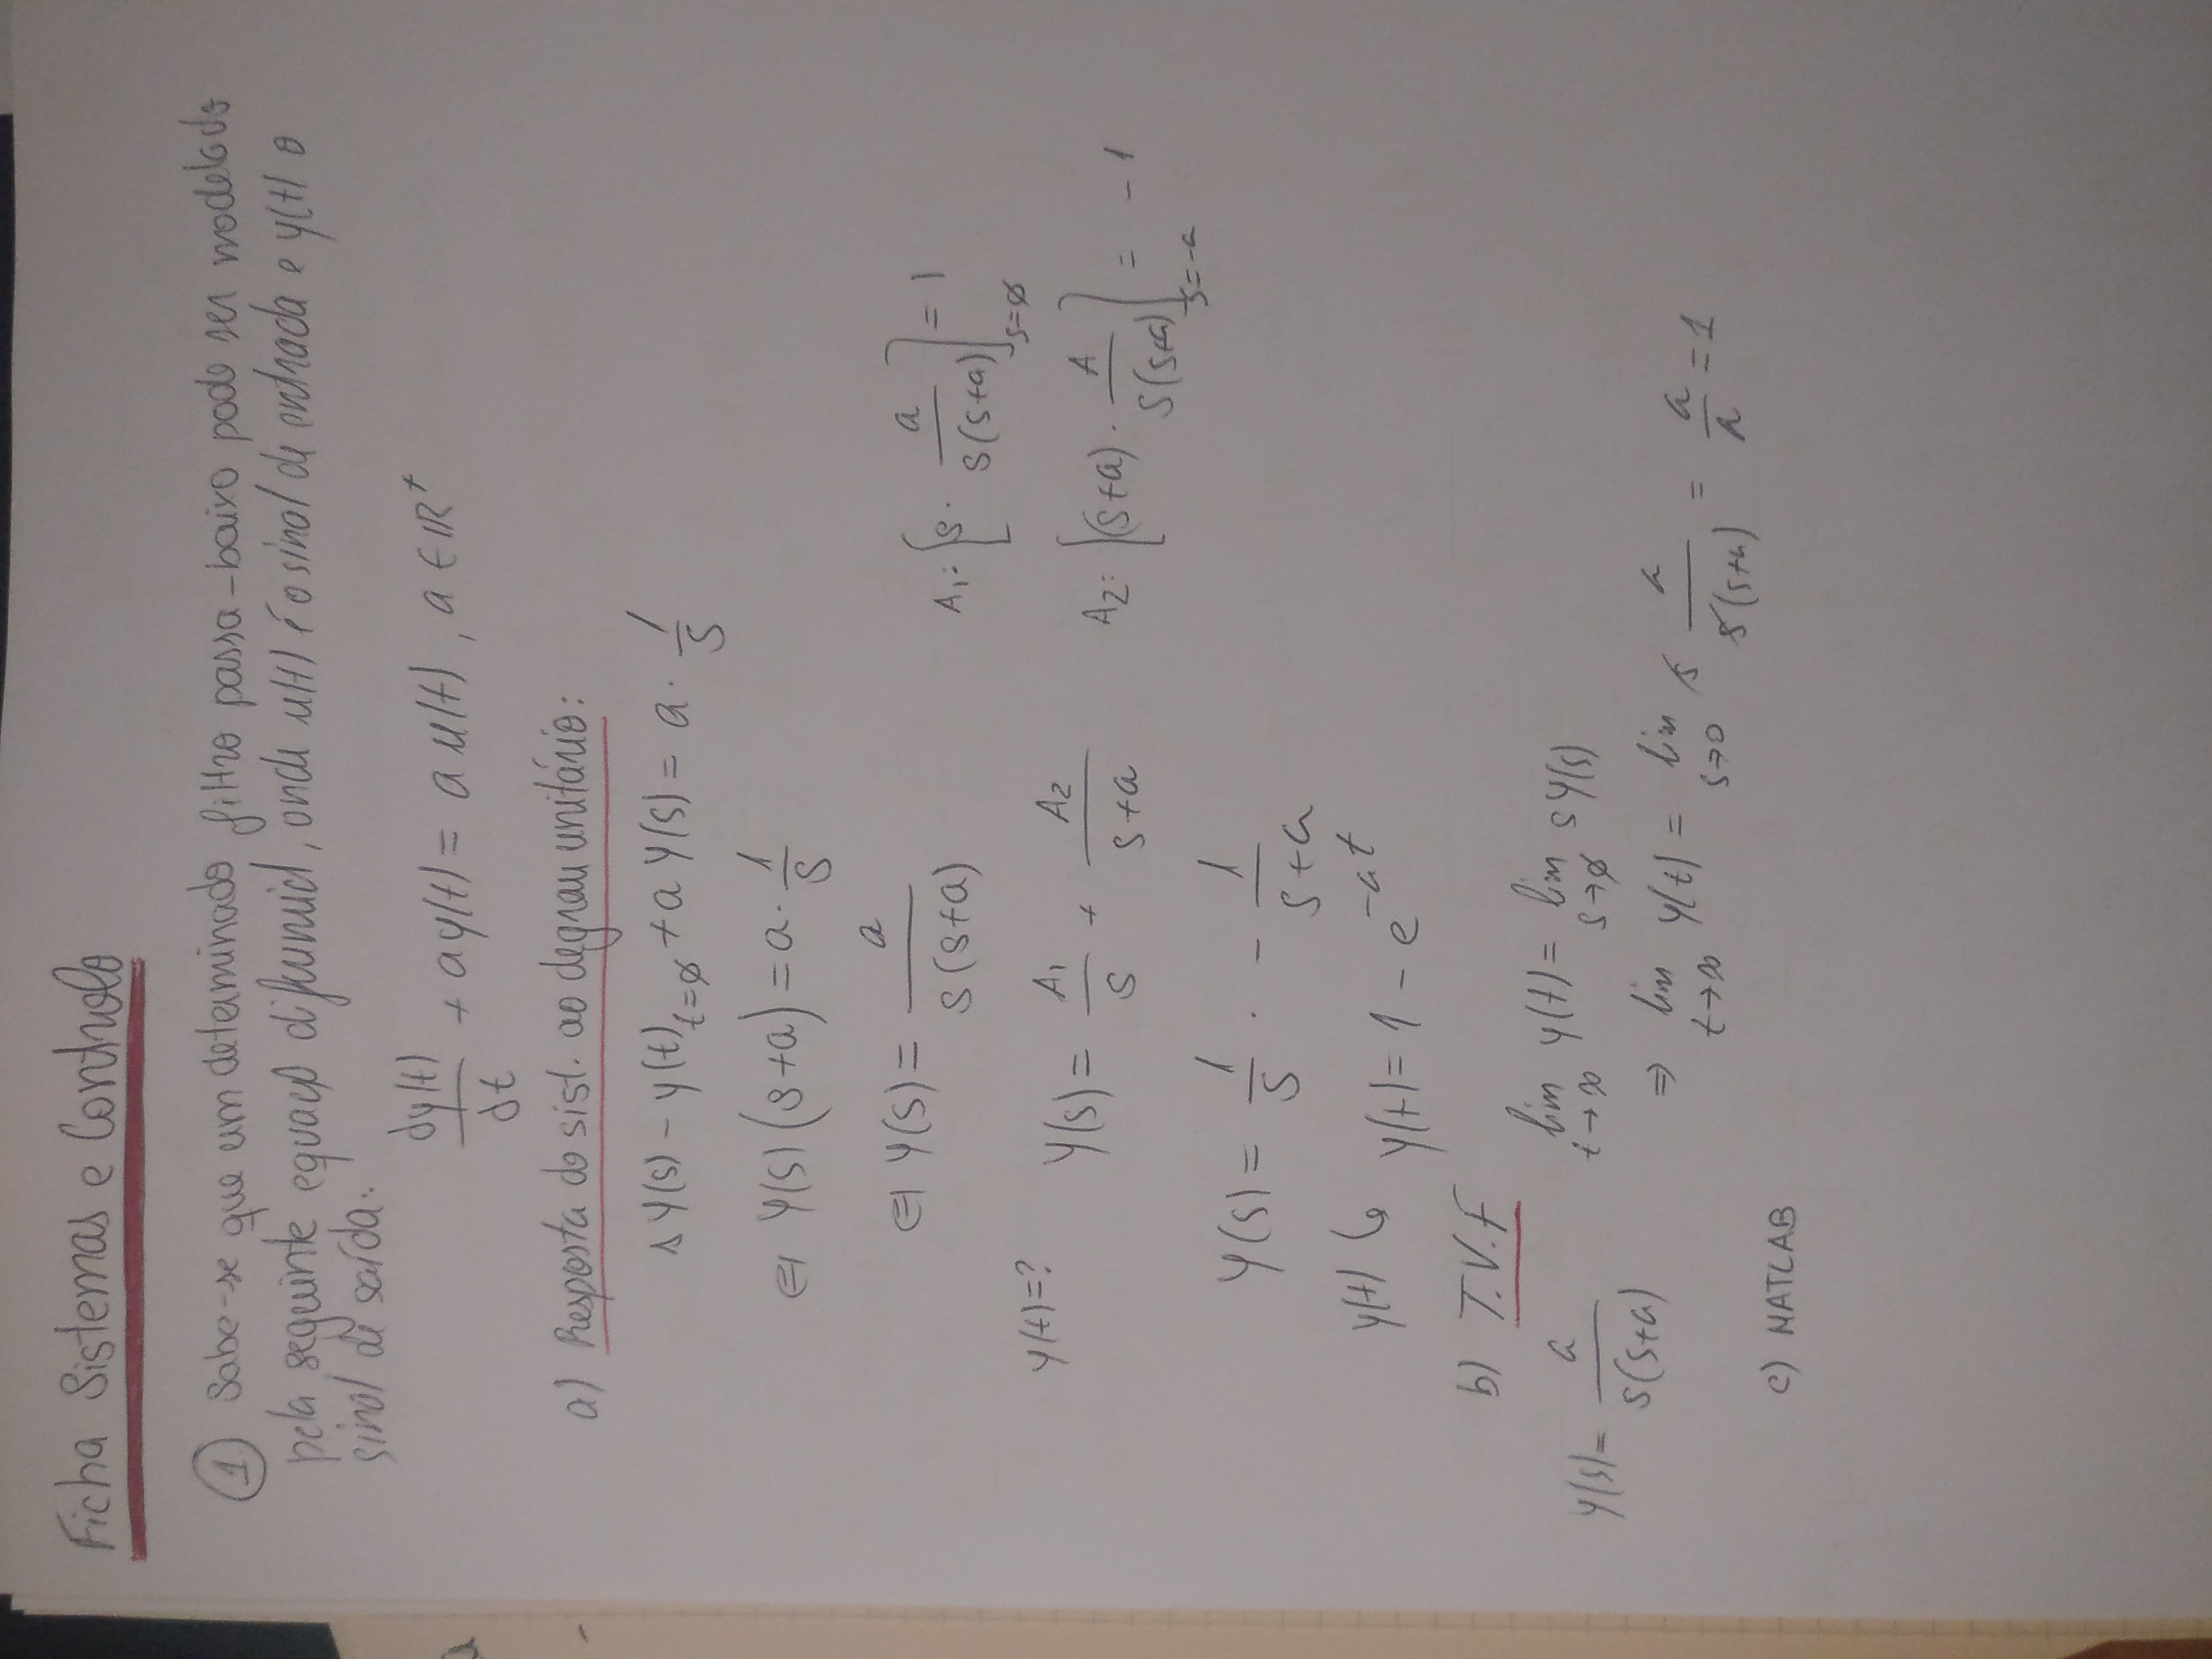 Ficha Sistemas e Controlo
① Sabe-se que um determinado filtro passa-baixo pode ser modelado
pela seguinte equação diferencial, onde u(t) é o sinal de entrada e y(t) o
sinal de saída.
dy(t)/dt + ay(t) = a u(t), a ∈ ℝ⁺
a) Resposta do sist. ao degrau unitário:
s Y(s) - y(t)_{t=∅} + a Y(s) = a · 1/s
⇔ Y(s) (s+a) = a · 1/s
⇔ Y(s) = a / s(s+a)
A₁ = [s · a / s(s+a)]_{s=∅} = 1
y(t)=? Y(s) = A₁/s + A₂/(s+a)
A₂ = [(s+a) · A / s(s+a)]_{s=-a} = -1
Y(s) = 1/s · - 1/(s+a)
y(t) ↳ y(t) = 1 - e^{-at}
b) T.V.F
Y(s) = a / s(s+a)
lim_{t→∞} y(t) = lim_{s→∅} sY(s)
⇒ lim_{t→∞} y(t) = lim_{s→0} s a / s(s+a) = a/a = 1
c) MATLAB